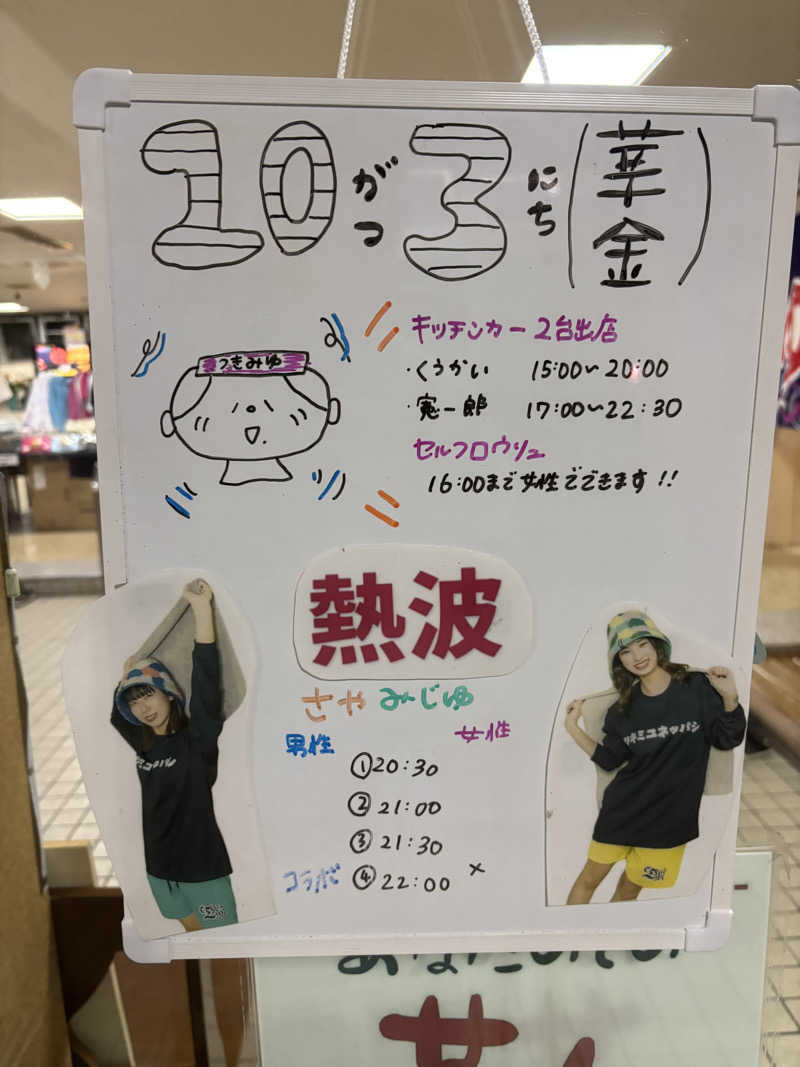 10がつ3にち(華金)
つきみゆ
キッチンカー 2台出店
・くうかい 15:00〜20:00
・寛一郎 17:00〜22:30
セルフロウリュ
16:00まで女性でできます!!
熱波
さや みーじゅ
男性 女性
①20:30
②21:00
③21:30
コラボ ④22:00 ×
キミユネッパシ